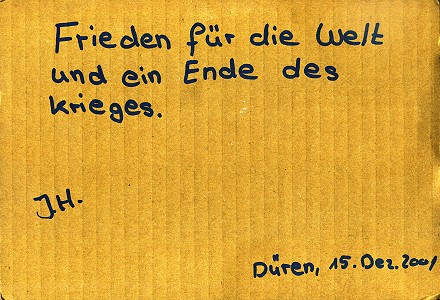 Frieden für die Welt
und ein Ende des
krieges.
J.H.
Düren, 15. Dez. 2001